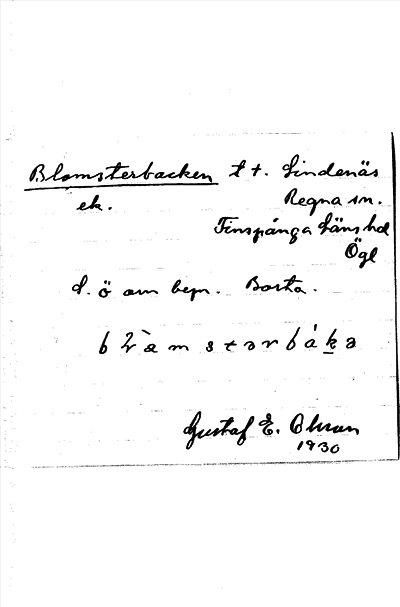 Blomsterbacken t t. Lindenäs
ek. Regna sn.
Finspånga läns hd
Ögl
S. ö om bepn. Borta.
b l à m s t ə r b á k ə
Gustaf E. Ohman
1930